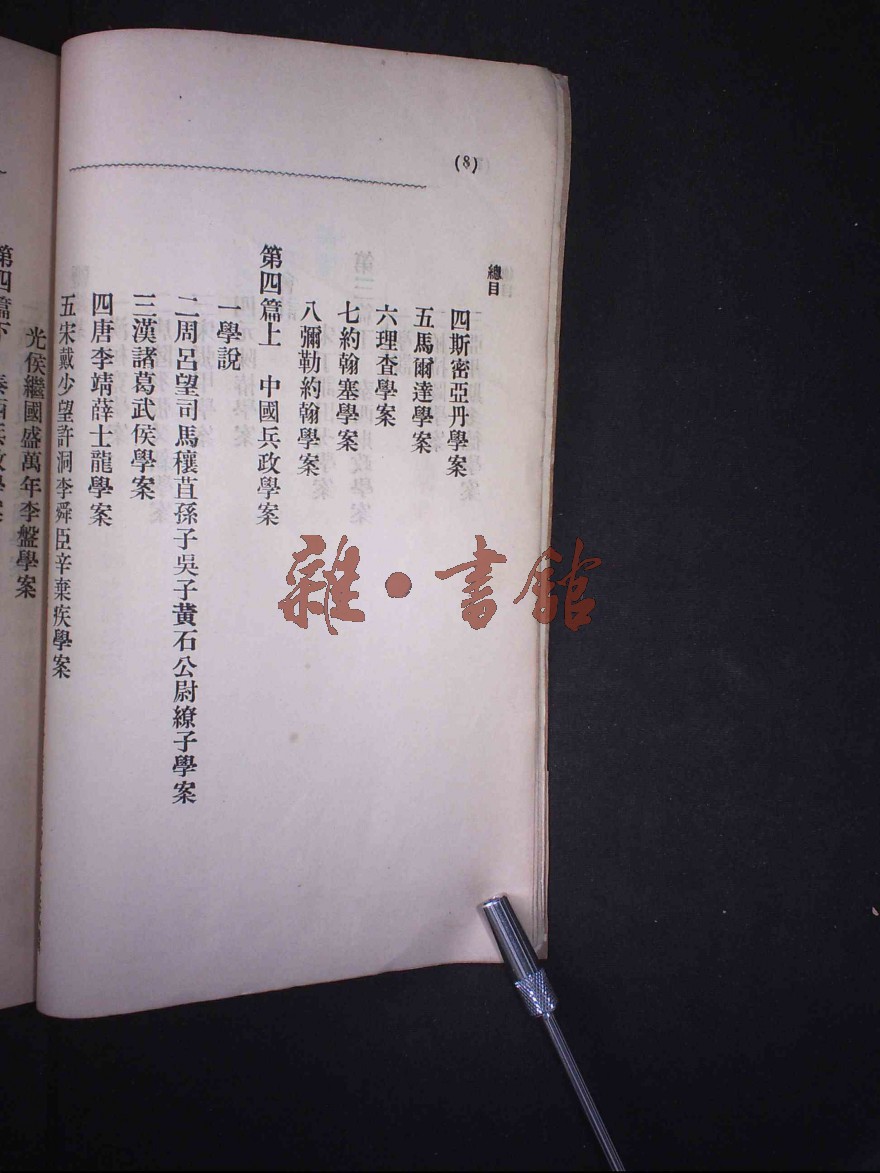 (8)
總目
四斯密亞丹學案
五馬爾達學案
六理查學案
七約翰塞學案
八彌勒約翰學案
第四篇上 中國兵政學案
一學說
二周呂望司馬穰苴孫子吳子黃石公尉繚子學案
三漢諸葛武侯學案
四唐李靖薛士龍學案
五宋戴少望許洞李舜臣辛棄疾學案
光侯繼國盛萬年李盤學案
第四篇下
雜·書館